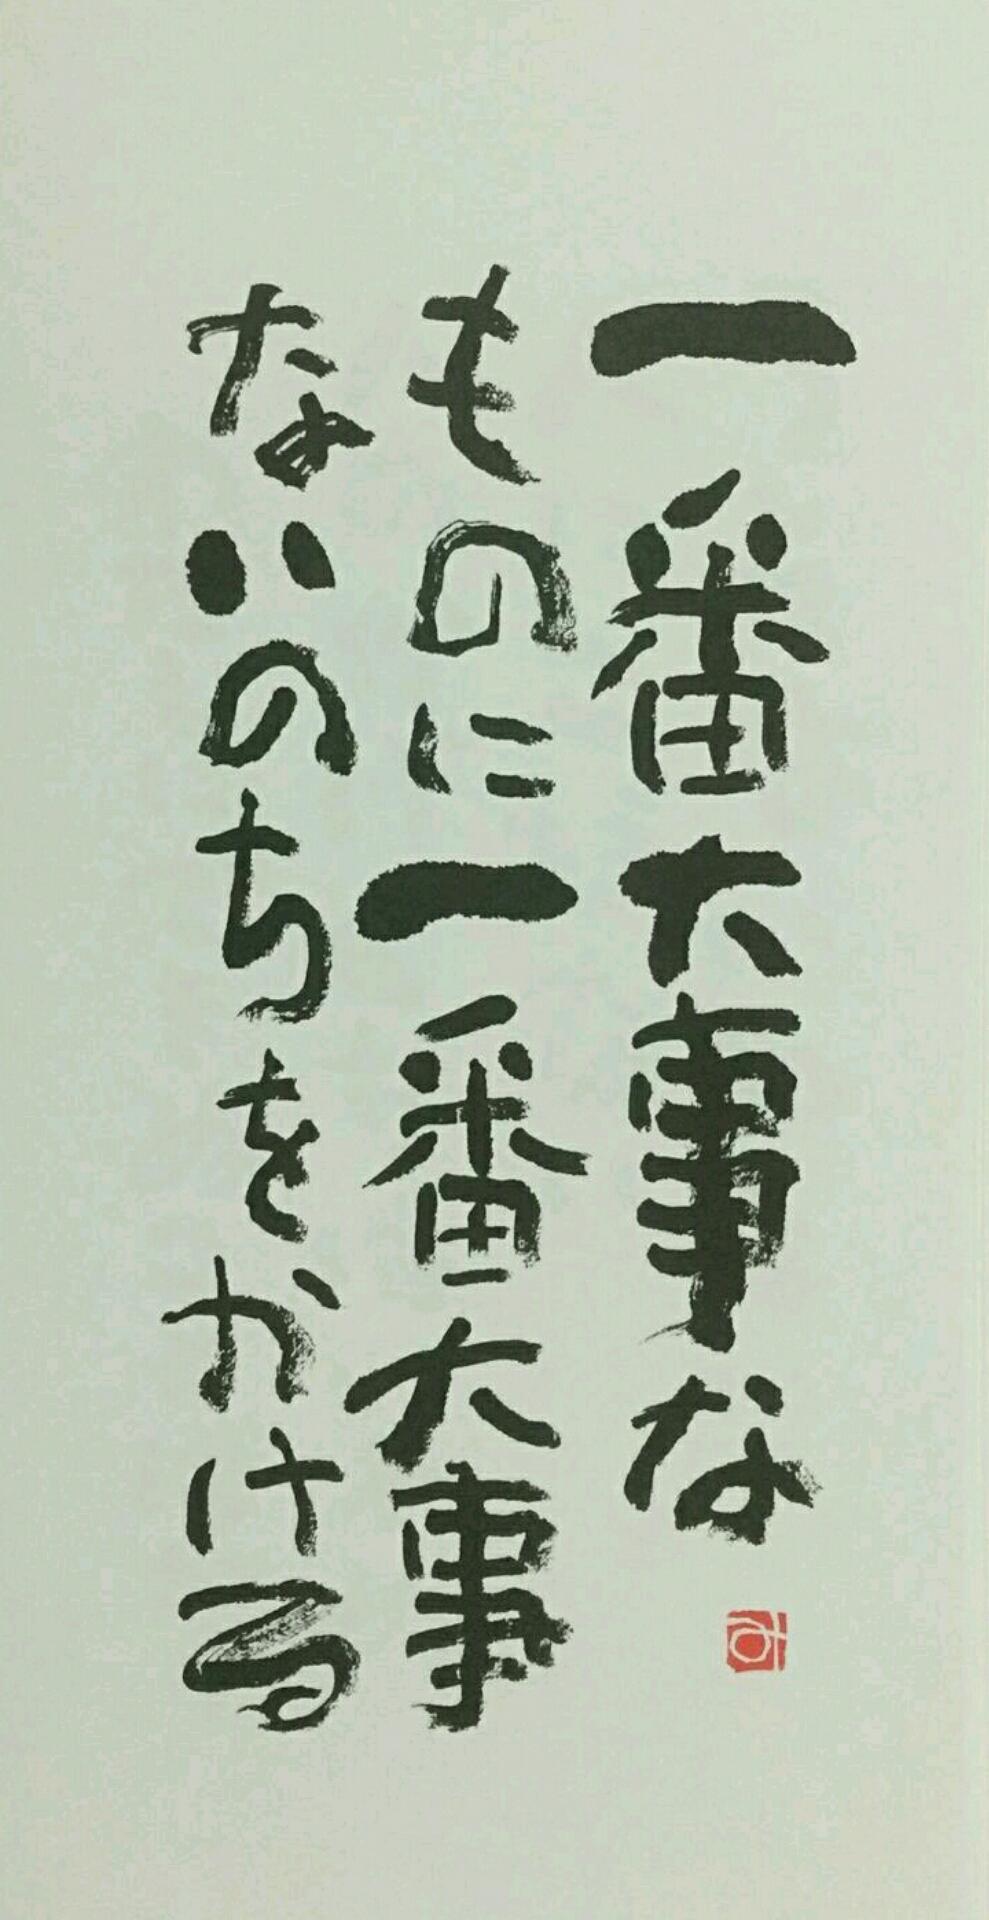 一番大事な
ものに一番大事
ないのちをかける
み